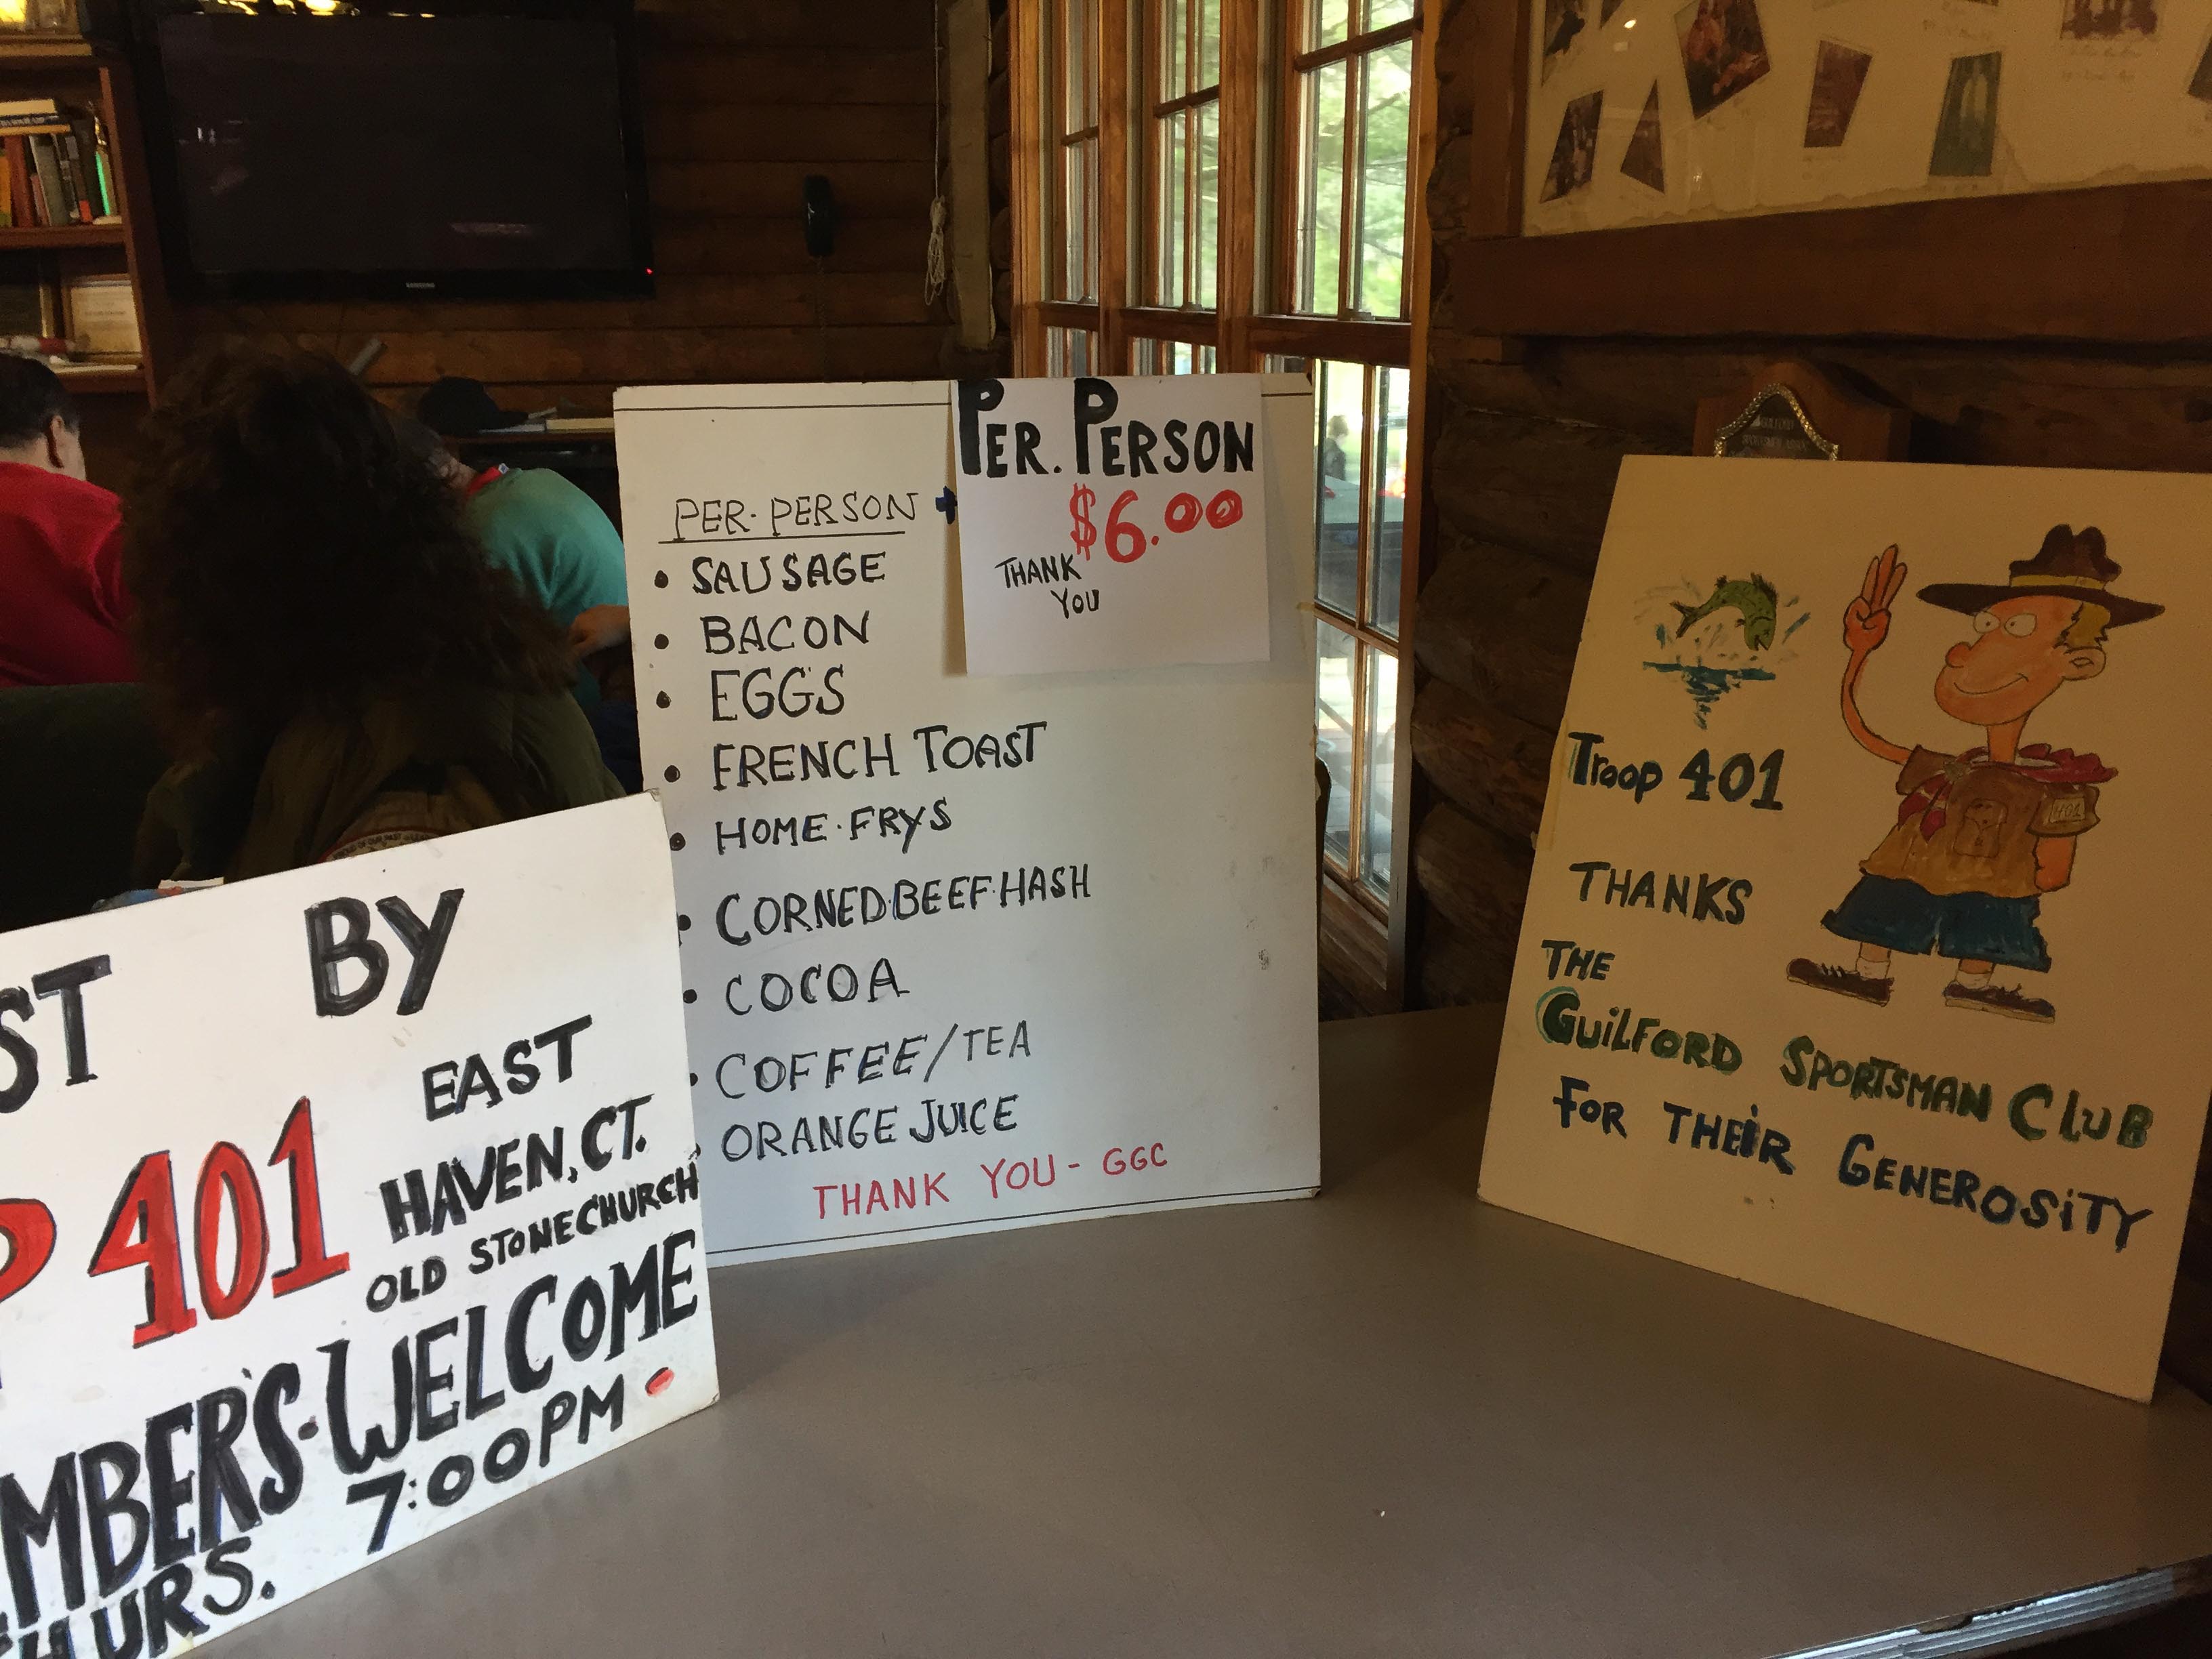 SAMSUNG
PER. PERSON
$6.00
THANK
YOU
PER-PERSON
• SAUSAGE
• BACON
• EGGS
• FRENCH TOAST
• HOME-FRYS
• CORNED-BEEF-HASH
• COCOA
• COFFEE/TEA
• ORANGE JUICE
THANK YOU - GGC
ST BY
P 401
EAST
HAVEN, CT.
OLD STONE CHURCH
MBER'S-WELCOME
HURS. 7:00PM
Troop 401
THANKS
THE
GUiLFORD SPORTSMAN CLUB
FOR THEiR GENEROSiTY
401